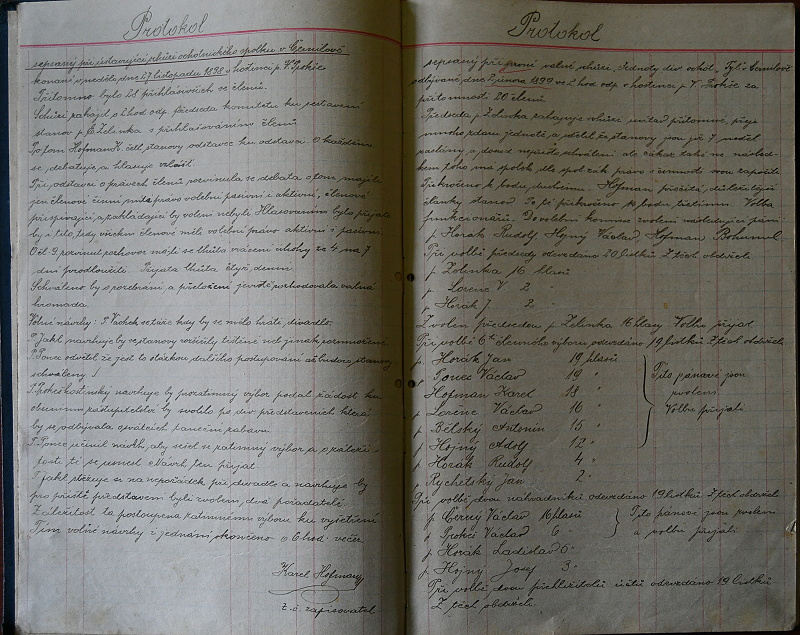 Protokol
sepsaný při ustavující schůzi ochotnického spolku v Černilově
konané v neděli dne 27 listopadu 1898 v hostinci p. V. Prokše
Přítomno bylo 28 přihlásivších se členů.
Schůzi zahájil o 2 hod. odp. předseda komitétu ku sestavení
stanov p. Zelinka s přihlašováním členů.
Potom Hofman K. četl stanovy odstavec ku odstavci. O každém
se debatuje a hlasuje zvlášť.
Při odstavci o právech členů rozvinula se debata o tom, mají-li
jen členové činní míti právo volební pasivní i aktivní, členové
přispívající a zakládající by voleni nebyli. Hlasováním bylo přijato
by i tito, tedy všickni členové měli volební právo aktivní i pasivní.
O čl. 9. rozvinul rozhovor má-li se lhůta vrácení úlohy ze 4 na 7
dní prodloužiti. Přijata lhůta čtyř denní.
Schváleno by o rozebrání a přeložení jeviště rozhodovala valná
hromada.
Volné návrhy: P. Vacek se táže kdy by se mělo hráti divadlo.
P. Jakl navrhuje by stanovy rozšířily tištěné neb jinak rozmnožené
P. Ponec odvětil že jest to otázkou dalšího postupování až budou stanovy
schváleny!
P. Prokš hostinský navrhuje by prozatímný výbor podal žádost ku
obecnímu zastupitelství by svolilo po div. představeních která
by se odbývala opíratých taneční zábavu.
P. Ponec učinil návrh, aby sešel se zatimný výbor a o záleži-
tosti té se usnesl. Návrh ten přijat.
P. Jakl stěžuje si na nepořádek při divadle a navrhuje by
pro příště představení byli zvoleni dva pořadatelé.
Záležitost ta postoupena zatimnému výboru ku vyšetření
Tím volné návrhy i jednání skončeno o 6 hod. večer.
Karel Hofman
z. č. zapisovatel
Protokol
sepsaný při první valné schůzi Jednoty div. ochot. "Tyl" v Černilově
odbývané dne 2. února 1899 ve 2 hod odp. v hostinci p. V. Prokše za
přítomnosti 20 členů.
Předseda p. Zelinka zahajuje schůzi uvítav přítomné, přeje
mnoho zdaru jednotě a sdělil že stanovy jsou již 7 neděl
zaslány a dosud nejsou schváleni ale zákaz také ne následkem
toho má spolek dle spol. zák. právo činnosti svou započíti
Přikročeno k bodu druhému. Hofman přečítá důležitější
články stanov. Po té přikročeno k bodu třetímu. Volba
funkcionářů. Do volební komise zvoleni následující páni:
p. Horák Rudolf Hojný Václav, Hofman Bohumil
Při volbě předsedy odevzdáno 20 lístků z těch obdržel:
p. Zelinka 16 hlasů
p. Lorenc V. 2 "
p. Horák J. 2 "
Zvolen předsedou p. Zelinka 16 hlasy. Volbu přijal.
Při volbě 6ti členného výboru odevzdáno 19 lístků z těch obdrželi
p. Horák Jan 19 hlasů
p. Ponec Václav 19 "
p. Hofman Karel 18 "
p. Lorenc Václav 16 "
p. Bělský Antonín 15 "
p. Hojný Adolf 12 "
p. Horák Rudolf 4 "
p. Rychetský Jan 2 "
Tito pánové jsou
zvoleni
Volbu přijali
Při volbě dvou náhradníků odevzdáno 19 lístků z těch obdrželi
p. Černý Václav 16 hlasů
p. Prokeš Václav 6 "
p. Horák Ladislav 6 "
p. Hojný Josef 3 "
Tito pánové jsou zvoleni
a volbu přijali
Při volbě dvou přehlížitelů účtů odevzdáno 19 lístků
z těch obdrželi.